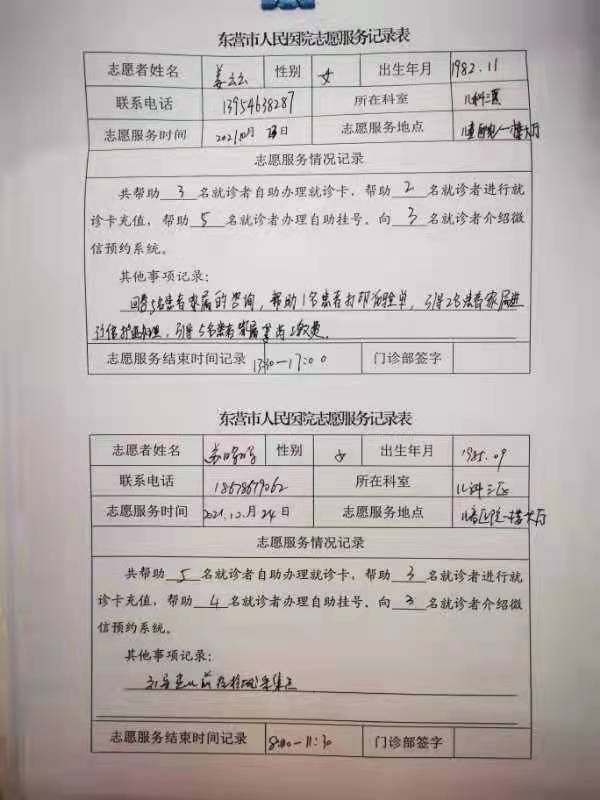 东营市人民医院志愿服务记录表
志愿者姓名 姜云云 性别 女 出生年月 1982.11
联系电话 13954638287 所在科室 儿科三区
志愿服务时间 2021年 月 日 志愿服务地点 儿童医院一楼大厅
志愿服务情况记录
共帮助 3 名就诊者自助办理就诊卡，帮助 2 名就诊者进行就
诊卡充值，帮助 5 名就诊者办理自助挂号。向 3 名就诊者介绍微
信预约系统。
其他事项记录：
回答5名患者家属的咨询，帮助1名患者打印化验单，引导2名患者家属进
引导5名患者家属 上缴费.
志愿服务结束时间记录 13:30—17:00 门诊部签字
东营市人民医院志愿服务记录表
志愿者姓名 性别 女 出生年月 1985.09
联系电话 18678679062 所在科室 儿科三区
志愿服务时间 2021.12月24日 志愿服务地点 儿童医院一楼大厅
志愿服务情况记录
共帮助 5 名就诊者自助办理就诊卡，帮助 3 名就诊者进行就
诊卡充值，帮助 4 名就诊者办理自助挂号。向 3 名就诊者介绍微
信预约系统。
其他事项记录：
引导患儿前往核酸采集点
志愿服务结束时间记录 8:00—11:30 门诊部签字